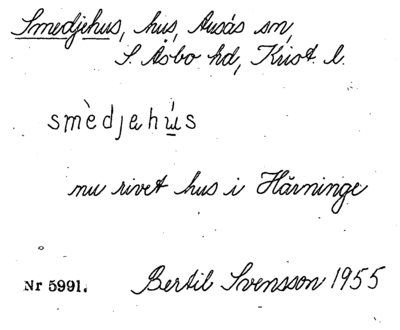 Smedjehus, hus, Ausås sn,
S. Åsbo hd, Krist. l.
smèdjehú̱s
nu rivet hus i Härninge
Nr 5991.
Bertil Svensson 1955